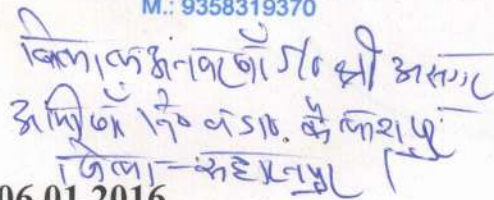 M.: 9358319370
अनवर खाँ S/o श्री असगर
अली खाँ नि० कैलाशपुर
जिला - सहारनपुर
06.01.2016